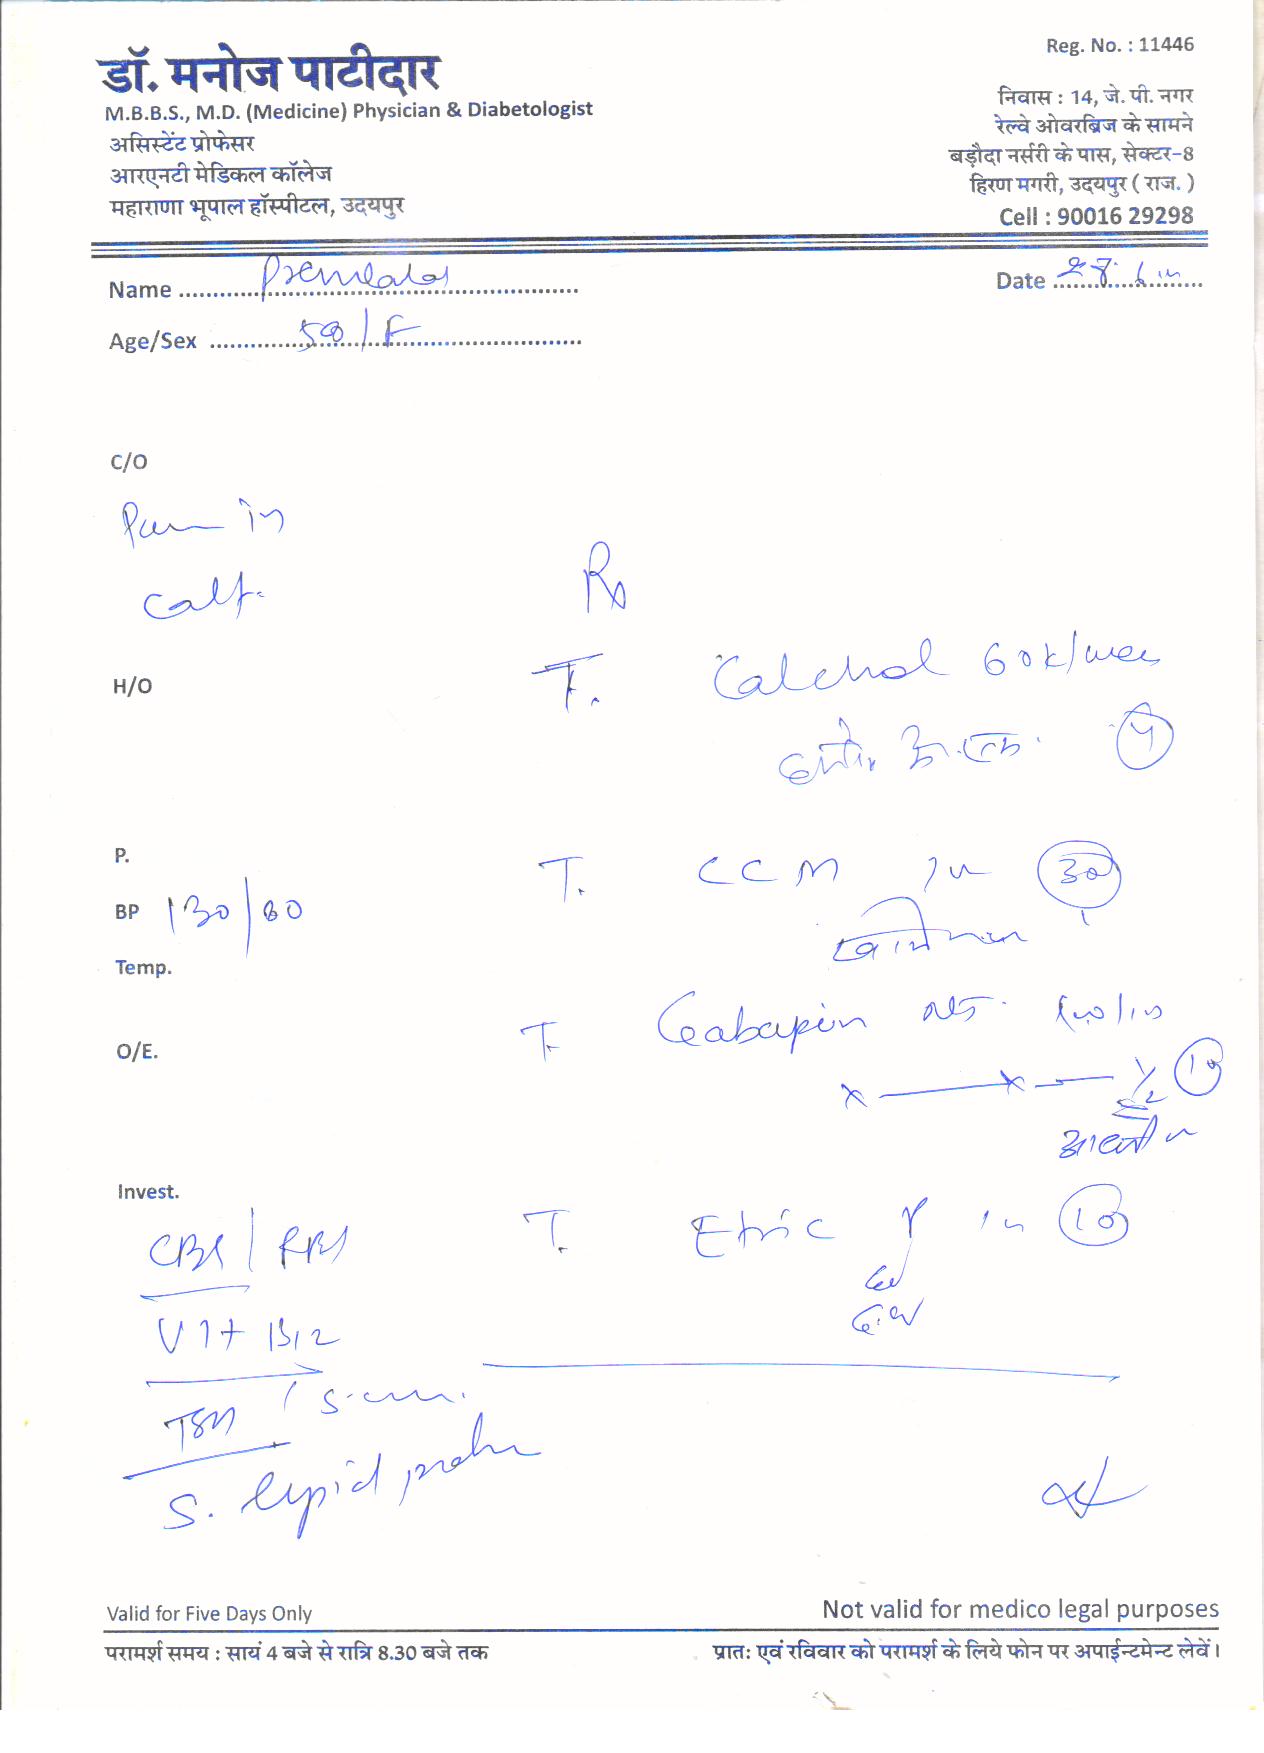 Reg. No. : 11446
डॉ. मनोज पाटीदार
M.B.B.S., M.D. (Medicine) Physician & Diabetologist
असिस्टेंट प्रोफेसर
आरएनटी मेडिकल कॉलेज
महाराणा भूपाल हॉस्पीटल, उदयपुर
निवास : 14, जे. पी. नगर
रेल्वे ओवरब्रिज के सामने
बड़ौदा नर्सरी के पास, सेक्टर-8
हिरण मगरी, उदयपुर ( राज. )
Cell : 90016 29298
Name Premlata
Date 28.6
Age/Sex 50/F
C/O
Pain in
Calf.
Rx
H/O
T. Calchol 60k/week
4
P.
T. CCM 30
BP 130/80
Temp.
T. Gabapin NT
O/E.
x — x — 1/2 10
Invest.
T. Etric 10
CBC / RBS
Vit B12
TSH
S. lipid profile
Valid for Five Days Only
Not valid for medico legal purposes
परामर्श समय : सायं 4 बजे से रात्रि 8.30 बजे तक
प्रातः एवं रविवार को परामर्श के लिये फोन पर अपाईन्टमेन्ट लेवें।